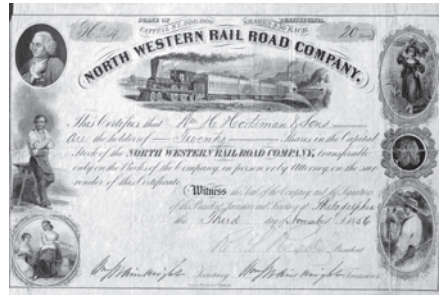 STATE OF PENNSYLVANIA.
CAPITAL $1,000,000
20
NORTH WESTERN RAIL ROAD COMPANY.
This Certifies that Wm H. & Sons
are the holders of Twenty Shares in the Capital
Stock of the NORTH WESTERN RAILROAD COMPANY, transferable
only on the Books of the Company, in person or by Attorney, on the sur
render of this Certificate.
Witness the Seal of the Company and the Signatures
of the President, Treasurer and Secretary at Philadelphia
the Third day of November 1856
President
Wm Wainwright Secretary Wm Wainwright Treasurer